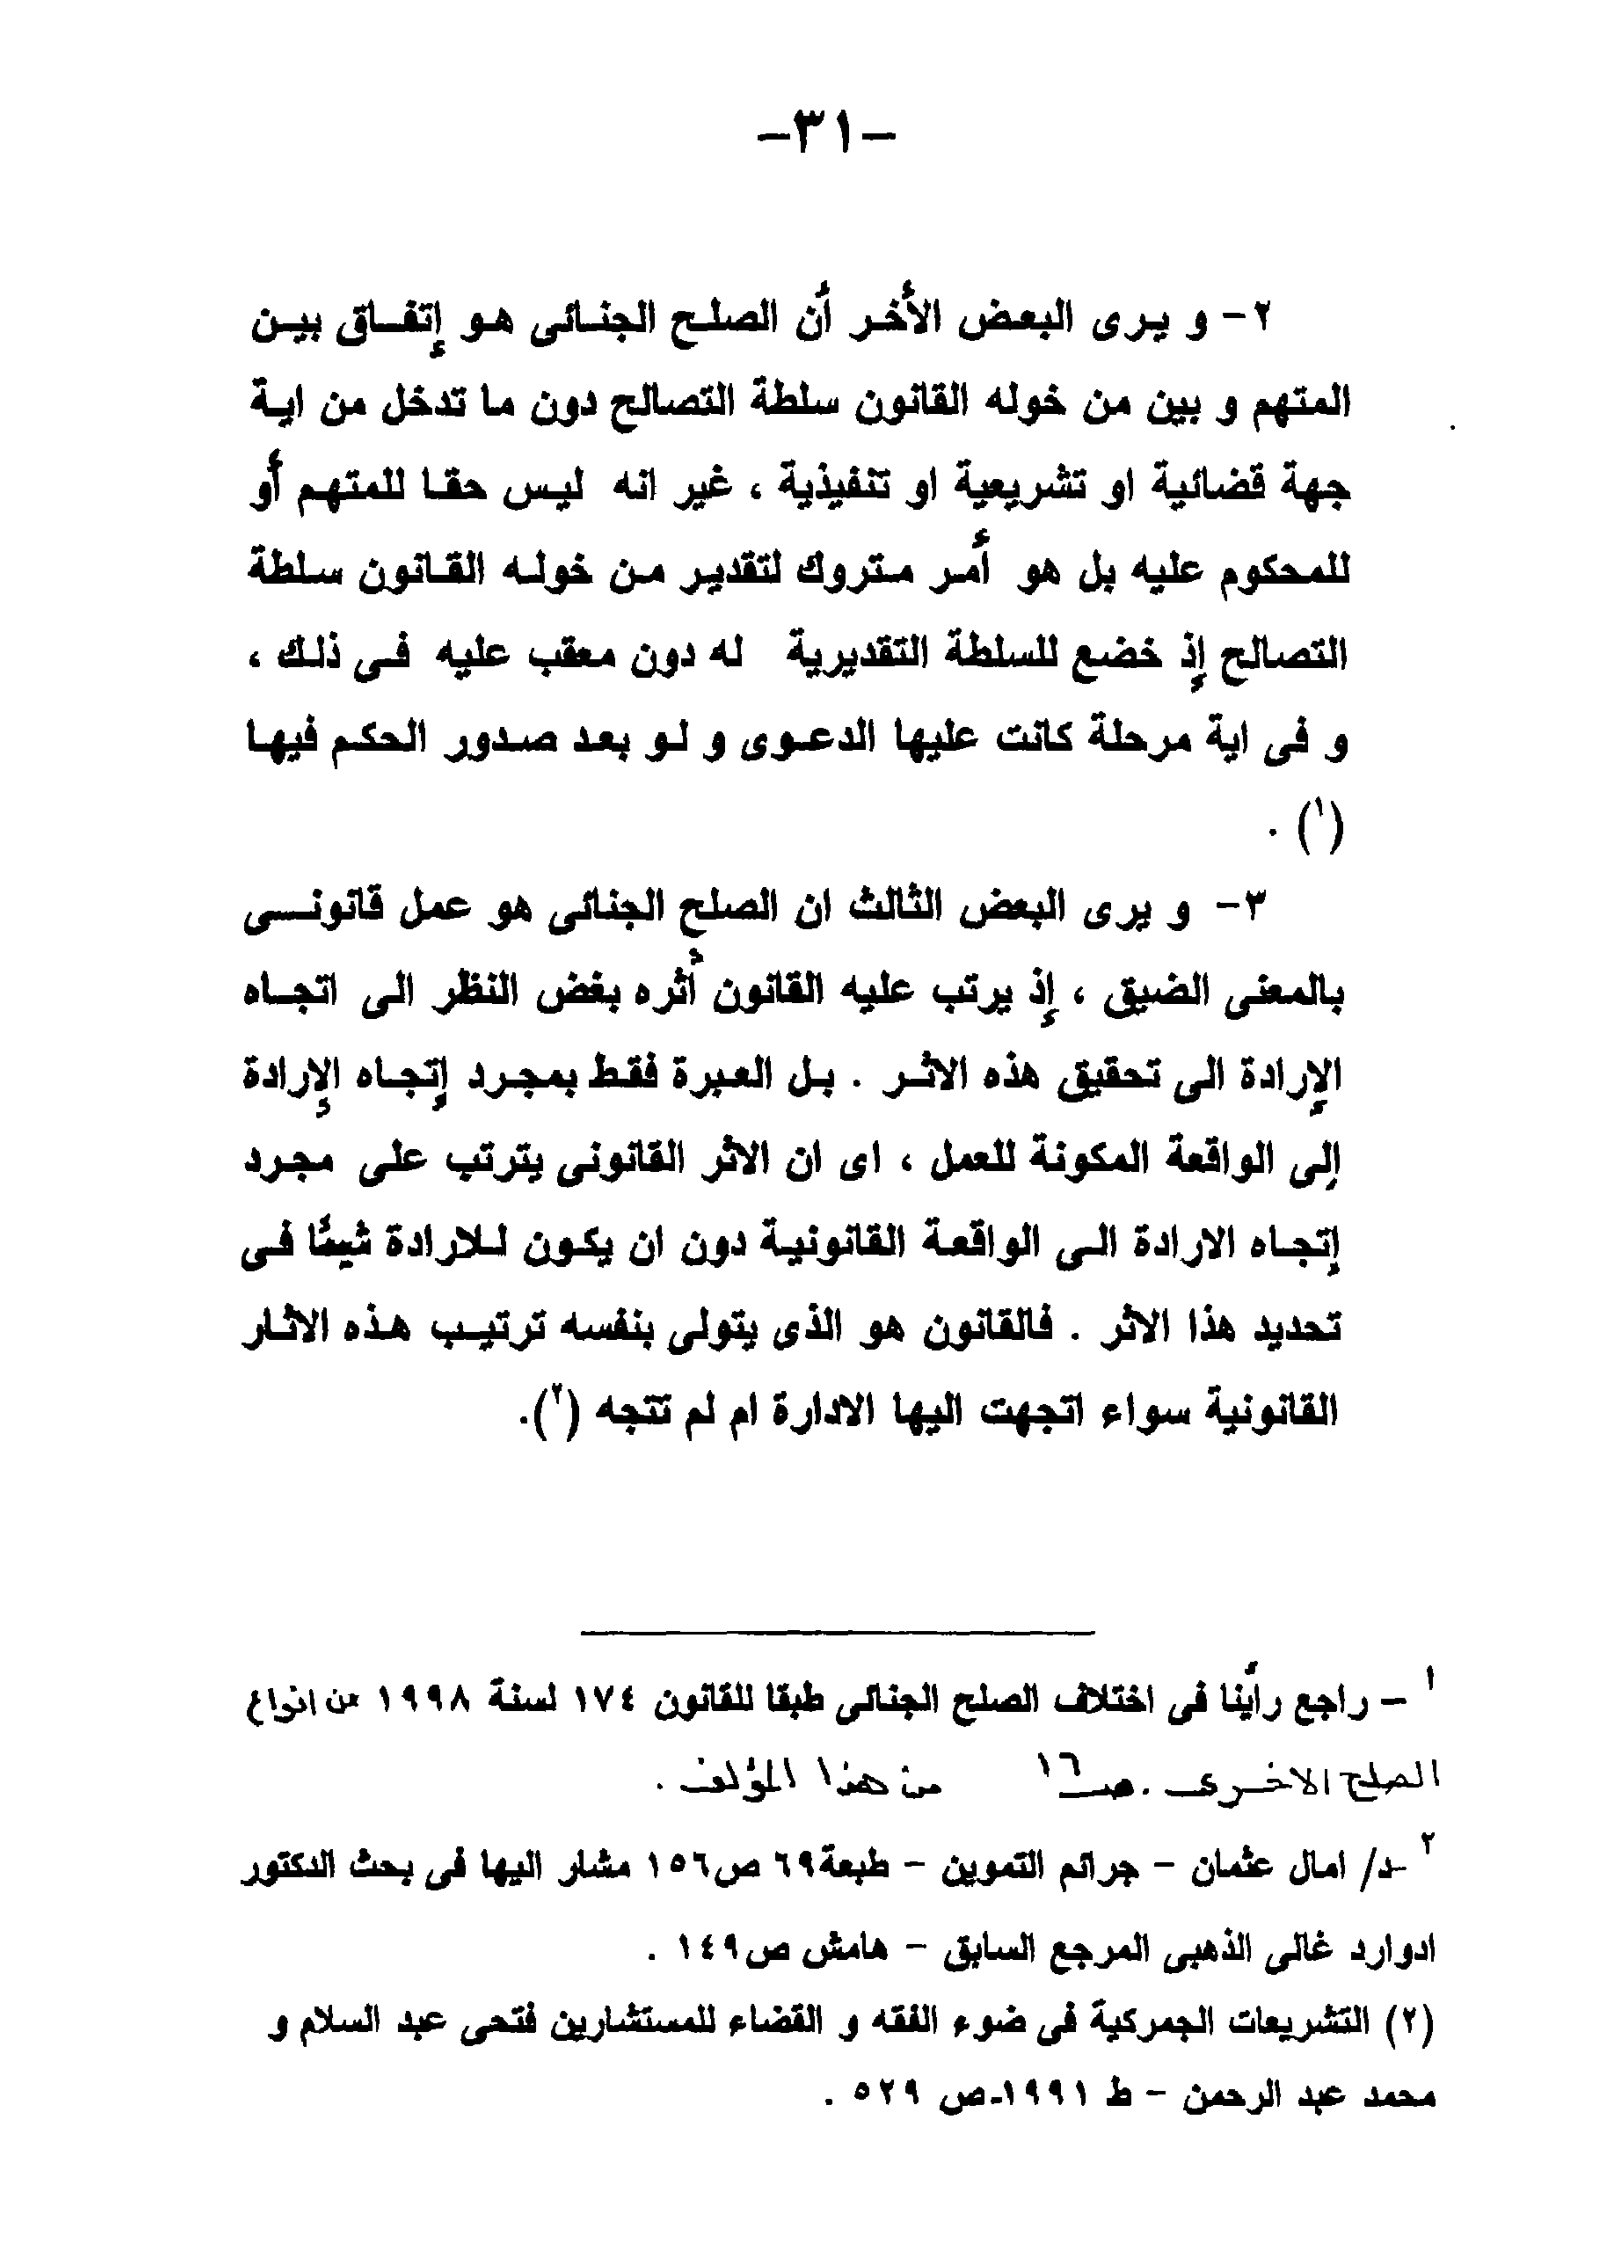 -٣١-
٢- و يرى البعض الأخر أن الصلح الجنائى هو إتفاق بين
المتهم و بين من خوله القانون سلطة التصالح دون ما تدخل من اية
جهة قضائية او تشريعية او تنفيذية ، غير انه ليس حقا للمتهم أو
للمحكوم عليه بل هو أمر متروك لتقدير من خوله القانون سلطة
التصالح إذ خضع للسلطة التقديرية له دون معقب عليه فى ذلك ،
و فى اية مرحلة كانت عليها الدعوى و لو بعد صدور الحكم فيها
(١) .
٣- و يرى البعض الثالث ان الصلح الجنائى هو عمل قانونى
بالمعنى الضيق ، إذ يرتب عليه القانون أثره بغض النظر الى اتجاه
الإرادة الى تحقيق هذه الاثر . بل العبرة فقط بمجرد إتجاه الإرادة
إلى الواقعة المكونة للعمل ، اى ان الاثر القانونى يترتب على مجرد
إتجاه الارادة الى الواقعة القانونية دون ان يكون للارادة شيئا فى
تحديد هذا الاثر . فالقانون هو الذى يتولى بنفسه ترتيب هذه الاثار
القانونية سواء اتجهت اليها الادارة ام لم تتجه (٢).
١ - راجع رأينا فى اختلاف الصلح الجنائى طبقا للقانون ١٧٤ لسنة ١٩٩٨ عن انواع
الصلح الاخرى . صـ ١٦ من هذا المؤلف .
٢ -د/ امال عثمان - جرائم التموين - طبعة٦٩ ص١٥٦ مشار اليها فى بحث الدكتور
ادوارد غالى الذهبى المرجع السابق - هامش ص١٤٩ .
(٢) التشريعات الجمركية فى ضوء الفقه و القضاء للمستشارين فتحى عبد السلام و
محمد عبد الرحمن - ط ١٩٩١-ص ٥٢٩ .